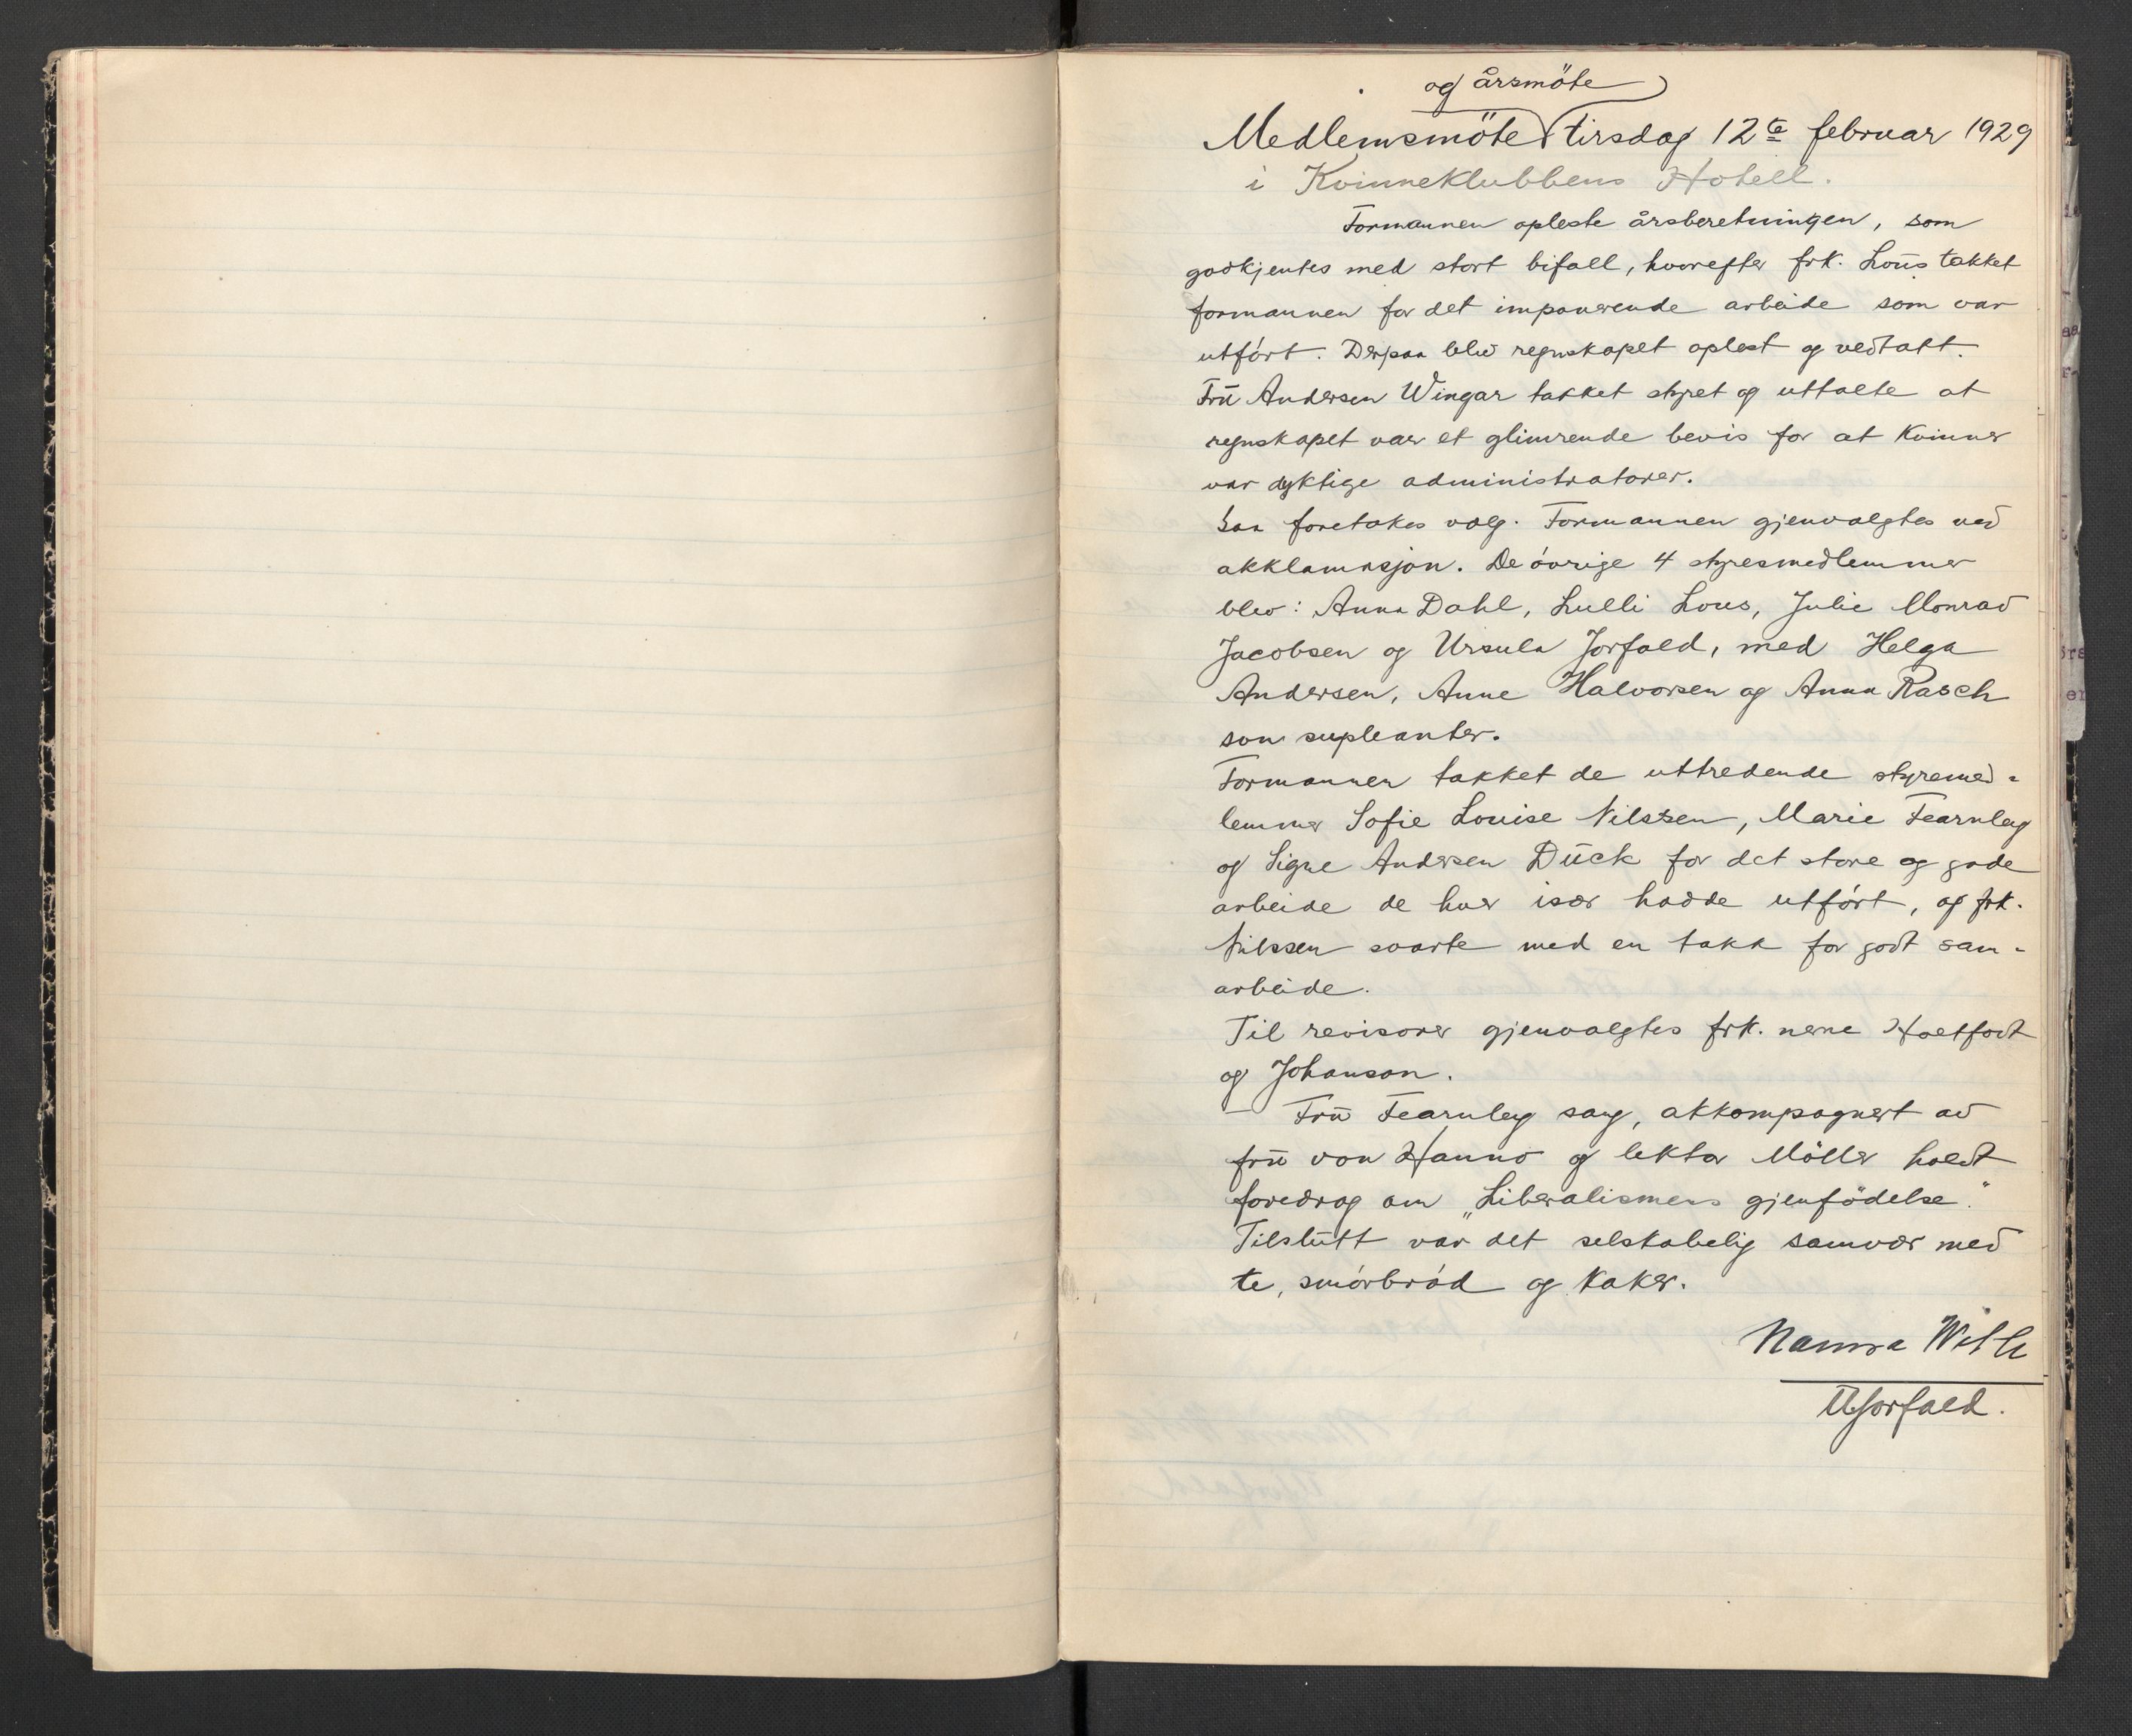 og årsmöte
Medlemsmöte tirsdag 12te februar 1929
i Kvinneklubbens Hotell.
Formannen opleste årsberetningen, som
godkjentes med stort bifall, hvorefter frk. Loüs takket
formannen for det imponerende arbeide som var
utfórt. Derpaa blev regnskapet oplest og vedtatt.
Frü Andersen Wingar takket styret og uttalte at
regnskapet var et glimrende bevis for at kvinner
var dyktige administratorer.
Saa foretokes valg. Formannen gjenvalgtes ved
akklamasjon. De óvrige 4 styresmedlemmer
blev: Anna Dahl, Lulli Lous, Julie Monrad
Jacobsen og Ursula Jorfald, med Helga
Andersen, Anne Halvorsen og Anna Rasch
som supleanter.
Formannen takket de uttredende styremed-
lemmer Sofie Louise Nilssen, Marie Fearnley
og Signe Andersen Dück for det store og gode
arbeide de hver især hadde utfórt, og frk.
Nilssen svarte med en takk for godt sam-
arbeide.
Til revisorer gjenvalgtes frk. nerne
og Johanson.
- Frü Fearnley sang, akkompagnert av
frü von Hanno og lektor Möller holdt
foredrag om „Liberalismens gjenfödelse."
Tilslütt var det selskabelig samvær med
te, smórbród og kaker.
Nanna With
UJorfald.